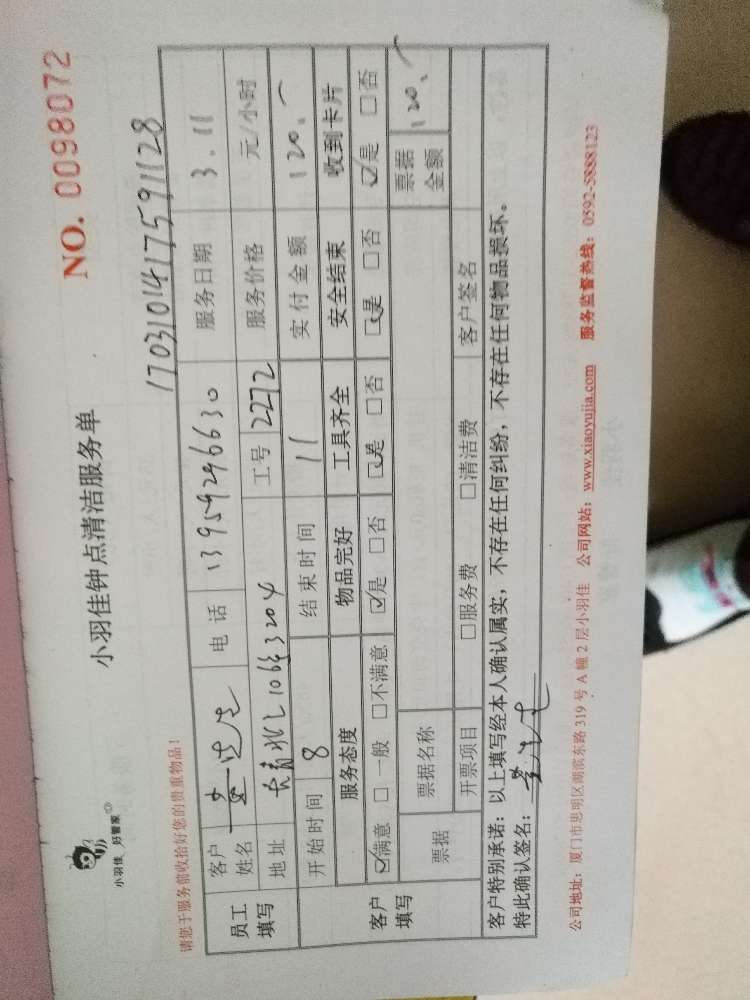 小羽佳 好管家
小羽佳钟点清洁服务单
NO. 0098072
请您于服务前收拾好您的贵重物品!
17031014175911128
员工填写
客户姓名 先生 电话 13959296630 服务日期 3.11
地址 长青北里106#3204 工号 2272 服务价格 元/小时
客户填写
开始时间 8 结束时间 11 实付金额 120.
服务态度 物品完好 工具齐全 安全结束 收到卡片
☑满意 □一般 □不满意 ☑是 □否 ☑是 □否 ☑是 □否 ☑是 □否
票据 票据名称 票据金额 120.
开票项目 □服务费 □清洁费 客户签名
客户特别承诺:以上填写经本人确认属实,不存在任何纠纷,不存在任何物品损坏。
特此确认签名:
公司地址:厦门市思明区湖滨东路319号A幢2层小羽佳 公司网站:www.xiaoyujia.com 服务监督热线:0592-5888123